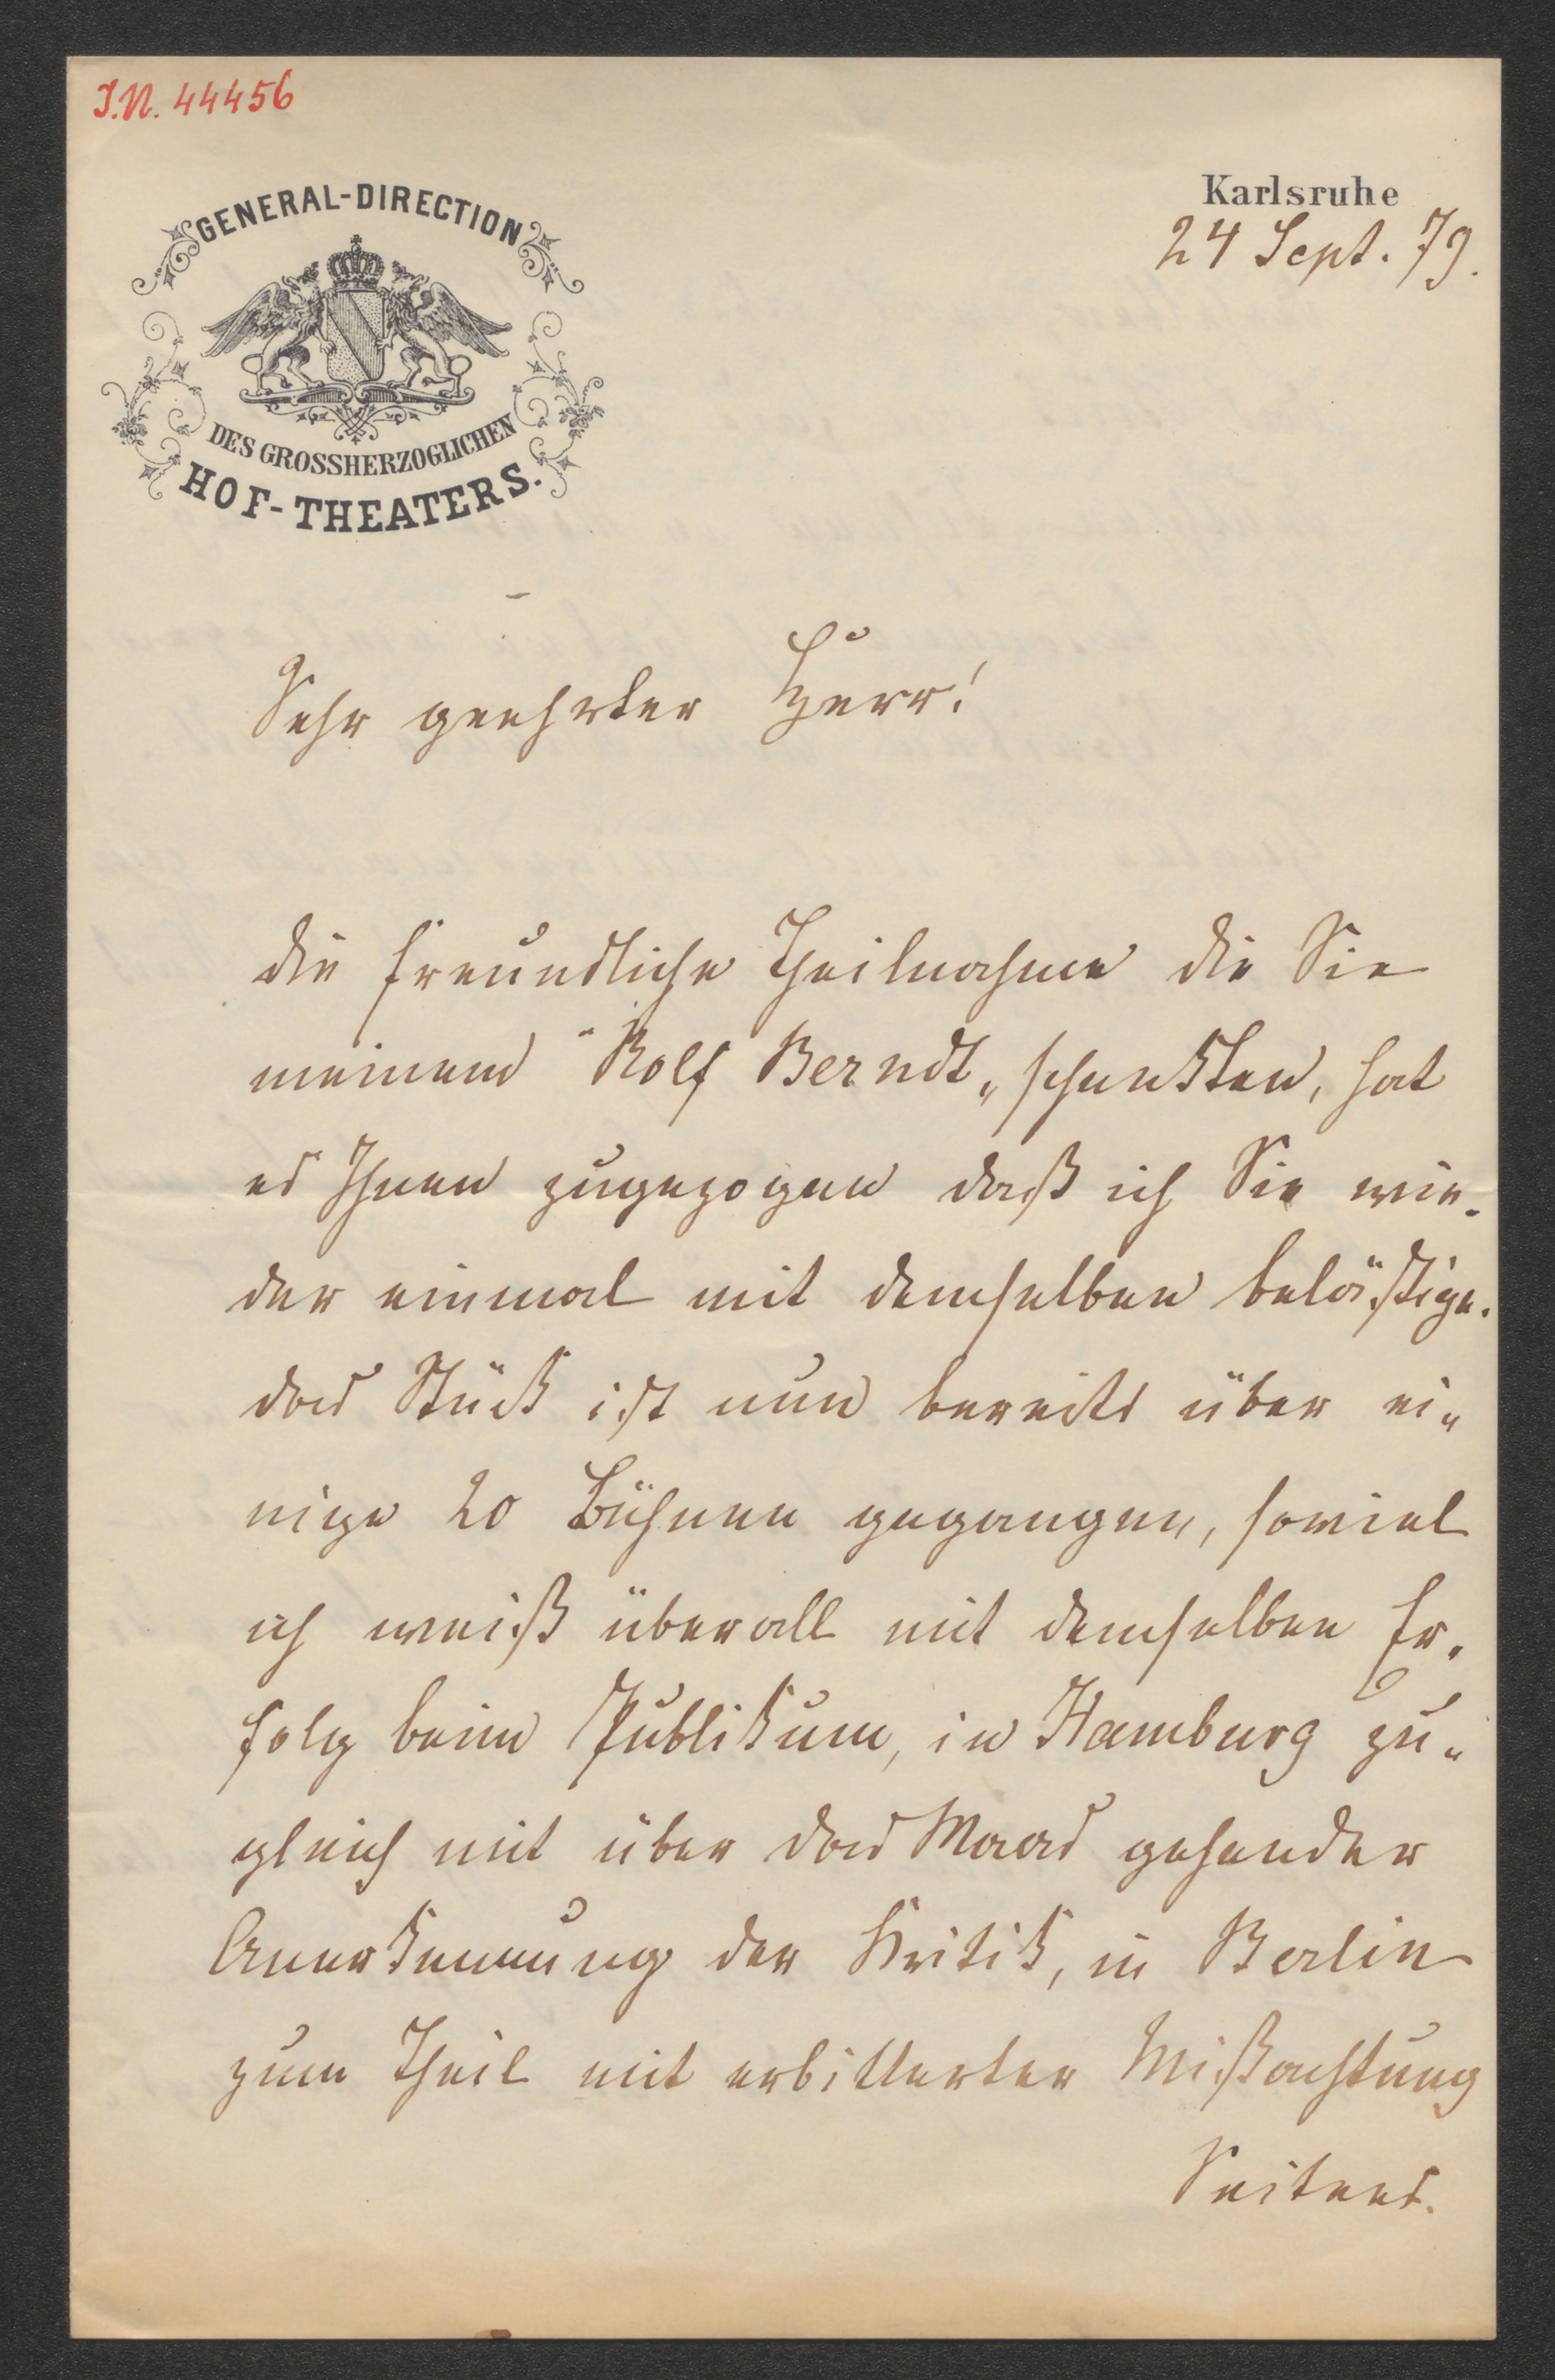 J.N. 44456
GENERAL-DIRECTION
DES GROSSHERZOGLICHEN
HOF-THEATERS.
Karlsruhe
24 Sept. 79.
Sehr geehrter Herr!
die freundliche Theilnahme die Sie
meinem "Rolf Berndt„ schenkten, hat
es Ihnen zugezogen daß ich Sie wie-
der einmal mit demselben belästige.
das Stück ist nun bereits über ei„
nige 20 Bühnen gegangen, soviel
ich weiß überall mit demselben Er-
folg beim Publikum, in Hamburg zu„
gleich mit über das Maas gehender
Anerkennung der Kritik, in Berlin
zum Theil mit erbitterter Mißachtung
Seitens.